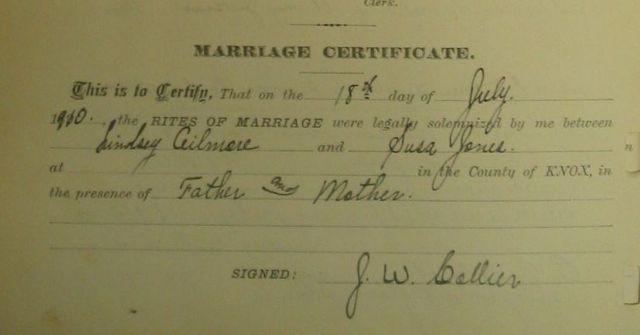 Clerk.
MARRIAGE CERTIFICATE.
This is to Certify, That on the 18th day of July.
1930. the RITES OF MARRIAGE were legally solemnized by me between
Lindsey Gilmore and Susa Jones.
at in the County of KNOX, in
the presence of Father and Mother.
SIGNED: J. W. Collier